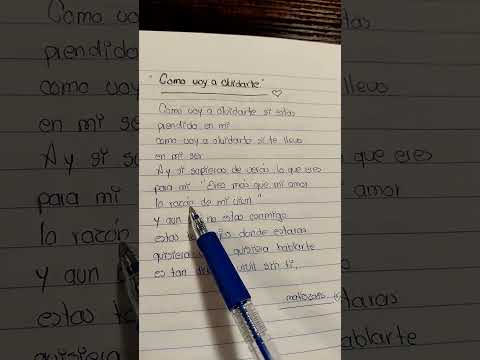 "Como voy a olvidarte"
Como voy a olvidarte si estas
prendido en mi
como voy a olvidarte si te llevo
en mi ser
Ay si supieras de veras lo que eres
para mi "Eres más que mi amor
la razón de mi vivir"
y aun no estas conmigo
estas donde estaras
quisiera quisiera hablarte
es tan vivir sin ti,